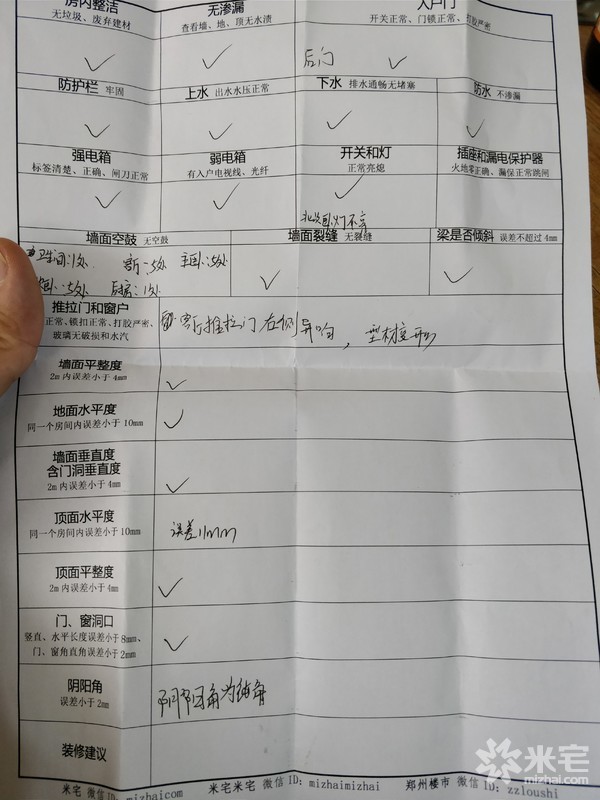 房内整洁
无垃圾、废弃建材
无渗漏
查看墙、地、顶无水渍
入户门
开关正常、门锁正常、打胶严密
后门
防护栏 牢固
上水 出水水压正常
下水 排水通畅无堵塞
防水 不渗漏
强电箱
标签清楚、正确、闸刀正常
弱电箱
有入户电视线、光纤
开关和灯
正常亮熄
插座和漏电保护器
火地零正确、漏保正常跳闸
墙面空鼓 无空鼓
卫生间:1处 客厅:5处 主卧:5处
墙面裂缝 无裂缝
梁是否倾斜 误差不超过4mm
推拉门和窗户
正常、锁扣正常、打胶严密、
玻璃无破损和水汽
推拉门右侧异响,型材变形
墙面平整度
2m内误差小于4mm
地面水平度
同一个房间内误差小于10mm
墙面垂直度
含门洞垂直度
2m内误差小于4mm
顶面水平度
同一个房间内误差小于10mm
误差11mm
顶面平整度
2m内误差小于4mm
门、窗洞口
竖直、水平长度误差小于8mm、
门、窗角直角误差小于2mm
阴阳角
误差小于2mm
阴阳角为钝角
装修建议
米宅 微信ID: mizhaicom 米宅米宅 微信ID: mizhaimizhai 郑州楼市 微信ID: zzloushi
米宅
mizhai.com